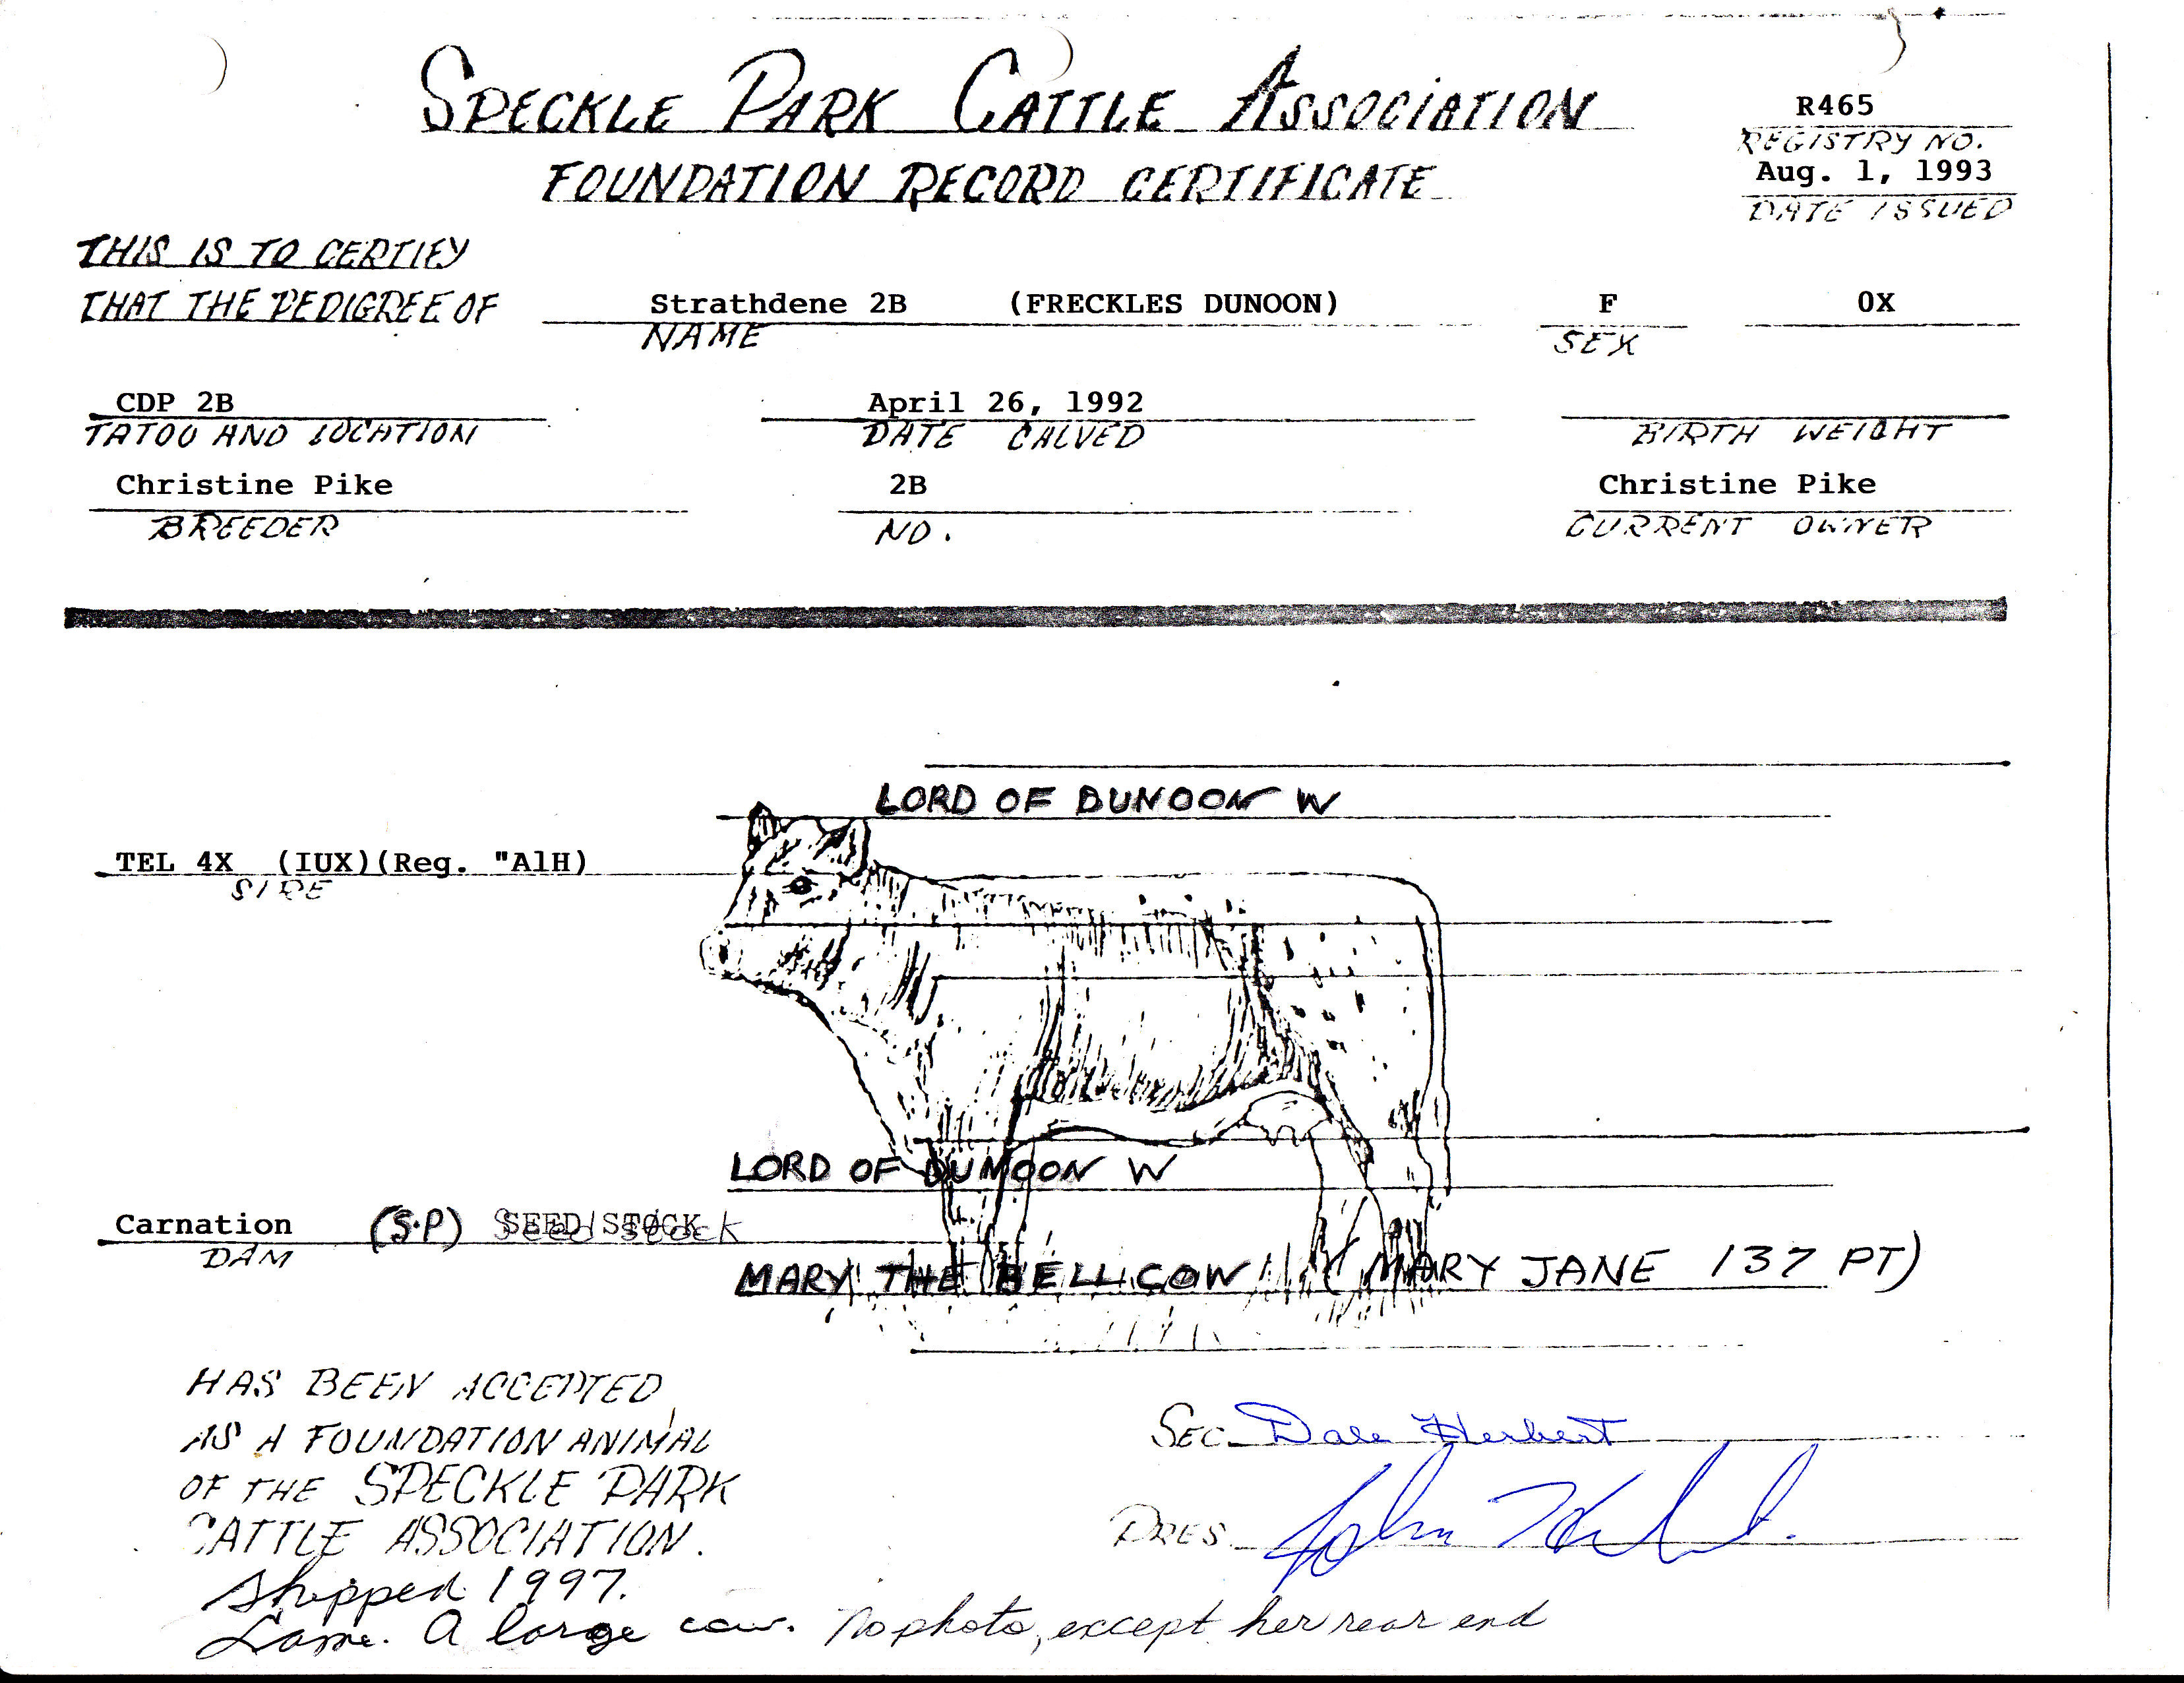 SPECKLE PARK CATTLE ASSOCIATION
R465
REGISTRY NO.
FOUNDATION RECORD CERTIFICATE
Aug. 1, 1993
DATE ISSUED
THIS IS TO CERTIFY
THAT THE PEDIGREE OF Strathdene 2B (FRECKLES DUNOON) F 0X
NAME SEX
CDP 2B April 26, 1992
TATOO AND LOCATION DATE CALVED BIRTH WEIGHT
Christine Pike 2B Christine Pike
BREEDER NO. CURRENT OWNER
LORD OF DUNOON W
TEL 4X (IUX)(Reg. "A1H)
SIRE
LORD OF DUNOON W
Carnation (S.P) SEED STOCK
DAM
MARY THE BELL COW (MARY JANE 137 PT)
HAS BEEN ACCEPTED
AS A FOUNDATION ANIMAL
OF THE SPECKLE PARK
CATTLE ASSOCIATION.
SEC. Dale Herbert
PRES. John
shipped 1997.
Lame. A large cow. No photo, except her rear end